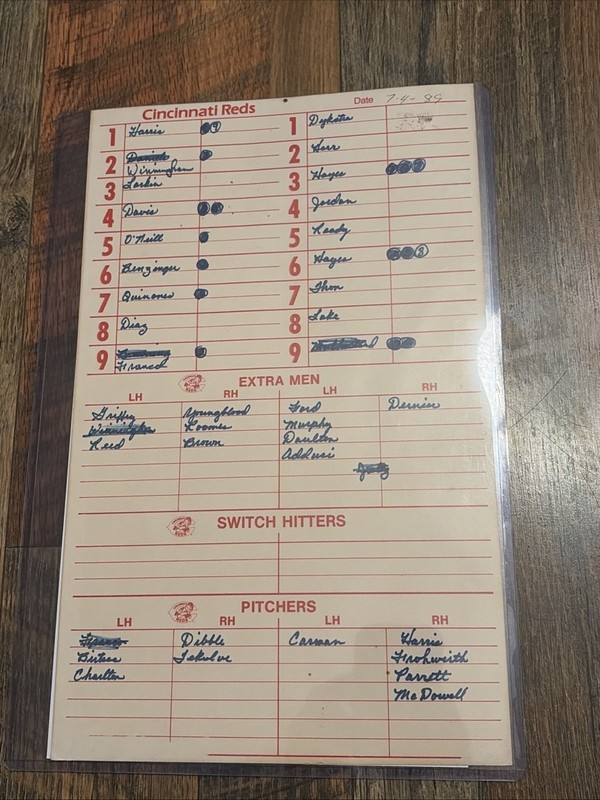 Cincinnati Reds
Date 7-4-89
1 Harris
2 Daniels
Winningham
3 Larkin
4 Davis
5 O'Neill
6 Benzinger
7 Quinones
8 Diaz
9
Franco
1 Dykstra
2 Herr
3 Hayes
4 Jordan
5 Ready
6 Hayes
7 Thon
8 Lake
9
EXTRA MEN
LH RH LH RH
Griffey Youngblood Ford Dernier
Winningham Loomer Murphy
Reed Brown Daulton
Adduci
REDS
SWITCH HITTERS
REDS
PITCHERS
LH RH LH RH
Franco Dibble Carman Harris
Birtsas Tekulve Frohwirth
Charlton Parrett
McDowell